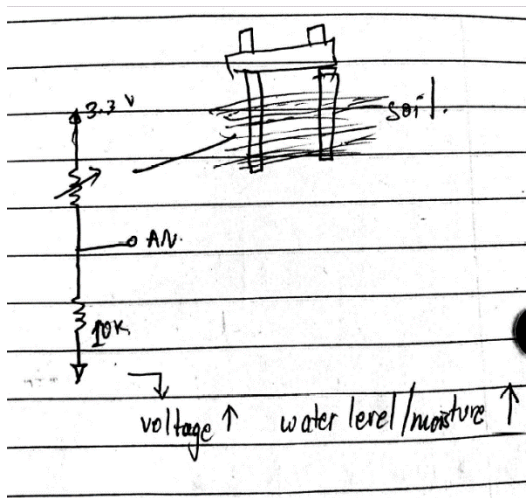 3.3 V
soil.
AN.
10K
voltage ↑ water level/moisture ↑